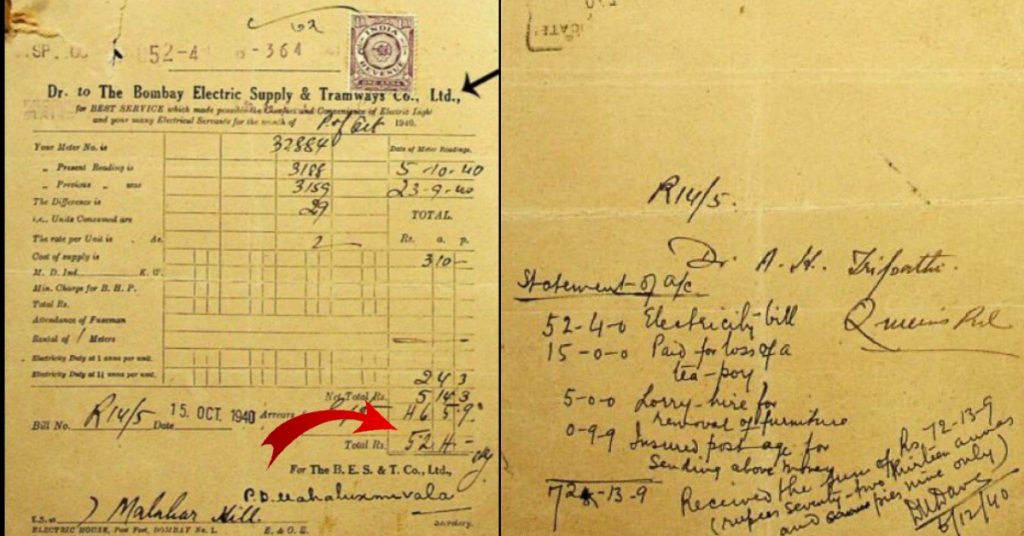 52-4 B-364
INDIA
REVENUE
ONE ANNA
Dr. to The Bombay Electric Supply & Tramways Co., Ltd.,
for BEST SERVICE which made possible the Comfort and Convenience of Electric Light
and your many Electrical Servants for the month of Oct 1940.
Your Meter No. is 32884 Date of Meter Readings.
„ Present Reading is 3188 5-10-40
„ Previous „ was 3159 23-9-40
The Difference is 29
i.e., Units Consumed are TOTAL.
The rate per Unit is As. 2 Rs. a. p.
Cost of supply is 3 10 -
M. D. Ind. K. W.
Min. Charge for B. H. P.
Total Rs.
Attendance of Fuseman
Rental of 1 Meters
Electricity Duty at 1 anna per unit.
Electricity Duty at 1½ annas per unit. 2 4 3
Net Total Rs. 5 14 3
Bill No. R14/5 Date 15 OCT. 1940 Arrears 46 5 9
Total Rs. 52 4 -
For The B. E. S. & T. Co., Ltd.,
Malabar Hill.
Secretary.
ELECTRIC HOUSE, Post Fort, BOMBAY No. 1. E. & O. E.
R14/5.
Dr. A. H. Tripathi.
Statement of a/c
Queens Rd
52-4-0 Electricity bill
15-0-0 Paid for loss of a
tea-poy
5-0-0 Lorry-hire for
removal of furniture
0-9-9 Insured postage for
Sending above money
72-13-9
Received the sum of Rs. 72-13-9
(rupees seventy-two, thirteen annas
and pies nine only)
6/12/40